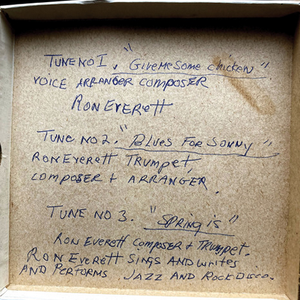 TUNE NO 1. "GIVE ME SOME CHICKEN"
VOICE ARRANGER COMPOSER
RON EVERETT
TUNE NO 2. "BLUES FOR SONNY"
RON EVERETT TRUMPET,
COMPOSER + ARRANGER.
TUNE NO 3. "SPRING IS"
RON EVERETT COMPOSER + TRUMPET.
RON EVERETT SINGS AND WRITES
AND PERFORMS JAZZ AND ROCK DISCO.